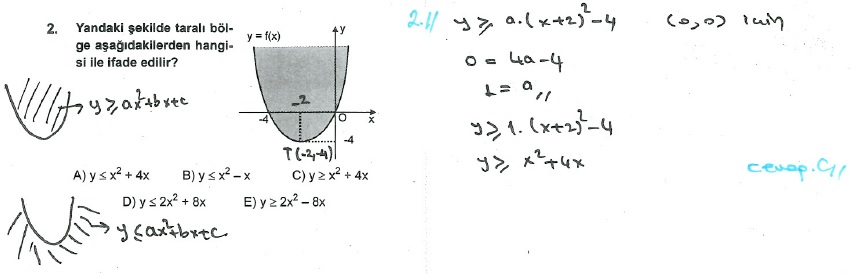 2. Yandaki şekilde taralı böl-
ge aşağıdakilerden hangi-
si ile ifade edilir?
y = f(x)
y
-2
-4
O
x
-4
T(-2,-4)
y ≥ ax²+bx+c
A) y ≤ x² + 4x B) y ≤ x² – x C) y ≥ x² + 4x
D) y ≤ 2x² + 8x E) y ≥ 2x² – 8x
y ≤ ax²+bx+c
2.4 y ≥ a.(x+2)²-4 (0,0) için
0 = 4a-4
1 = a,,
y ≥ 1.(x+2)²-4
y ≥ x²+4x
cevap.C,,